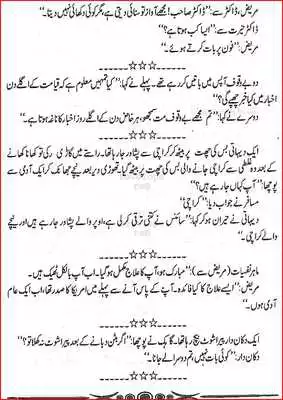 مریض، ڈاکٹر سے: ”ڈاکٹر صاحب! مجھے آواز تو سنائی دیتی ہے، مگر کوئی دکھائی نہیں دیتا۔“
ڈاکٹر حیرت سے: ”ایسا کب ہوتا ہے؟“
مریض: ”فون پر بات کرتے ہوئے۔“
☆☆☆
دو بے وقوف آپس میں باتیں کر رہے تھے۔ پہلے نے کہا: ”کیا تمہیں معلوم ہے کہ قیامت کے اگلے دن
اخبار میں کیا خبر چھپے گی؟“
دوسرے نے کہا: ”تم مجھے بے وقوف مت سمجھو، ہر خاص دن کے اگلے روز اخبار کا ناغہ ہوتا ہے۔“
☆☆☆
ایک دیہاتی بس کی چھت پر بیٹھ کر کراچی سے پشاور جا رہا تھا۔ راستے میں گاڑی رکی تو کھانا کھانے
کے بعد وہ غلطی سے کراچی جانے والی بس کی چھت پر بیٹھ گیا۔ تھوڑی دیر بعد نیچے جھانک کر ایک آدمی سے
پوچھا: ”آپ کہاں جا رہے ہیں؟“
مسافر نے جواب دیا: ”کراچی۔“
دیہاتی نے حیران ہو کر کہا: ”سائنس نے کتنی ترقی کر لی ہے، اوپر والے پشاور جا رہے ہیں اور نیچے
والے کراچی۔“
☆☆☆
ماہر نفسیات (مریض سے): ”مبارک ہو، آپ کا علاج مکمل ہو گیا۔ اب آپ بالکل ٹھیک ہیں۔
مریض: ”ایسے علاج کا کیا فائدہ۔ آپ کے پاس آنے سے پہلے میں امریکا کا صدر تھا، اب ایک عام
آدمی ہوں۔“
☆☆☆
ایک دکان دار پیراشوٹ بیچ رہا تھا۔ گاہک نے پوچھا: ”اگر بٹن دبانے کے بعد پیراشوٹ نہ کھلا تو؟“
دکان دار: ”کوئی بات نہیں، تم دوسرا لے جانا۔“
☆☆☆